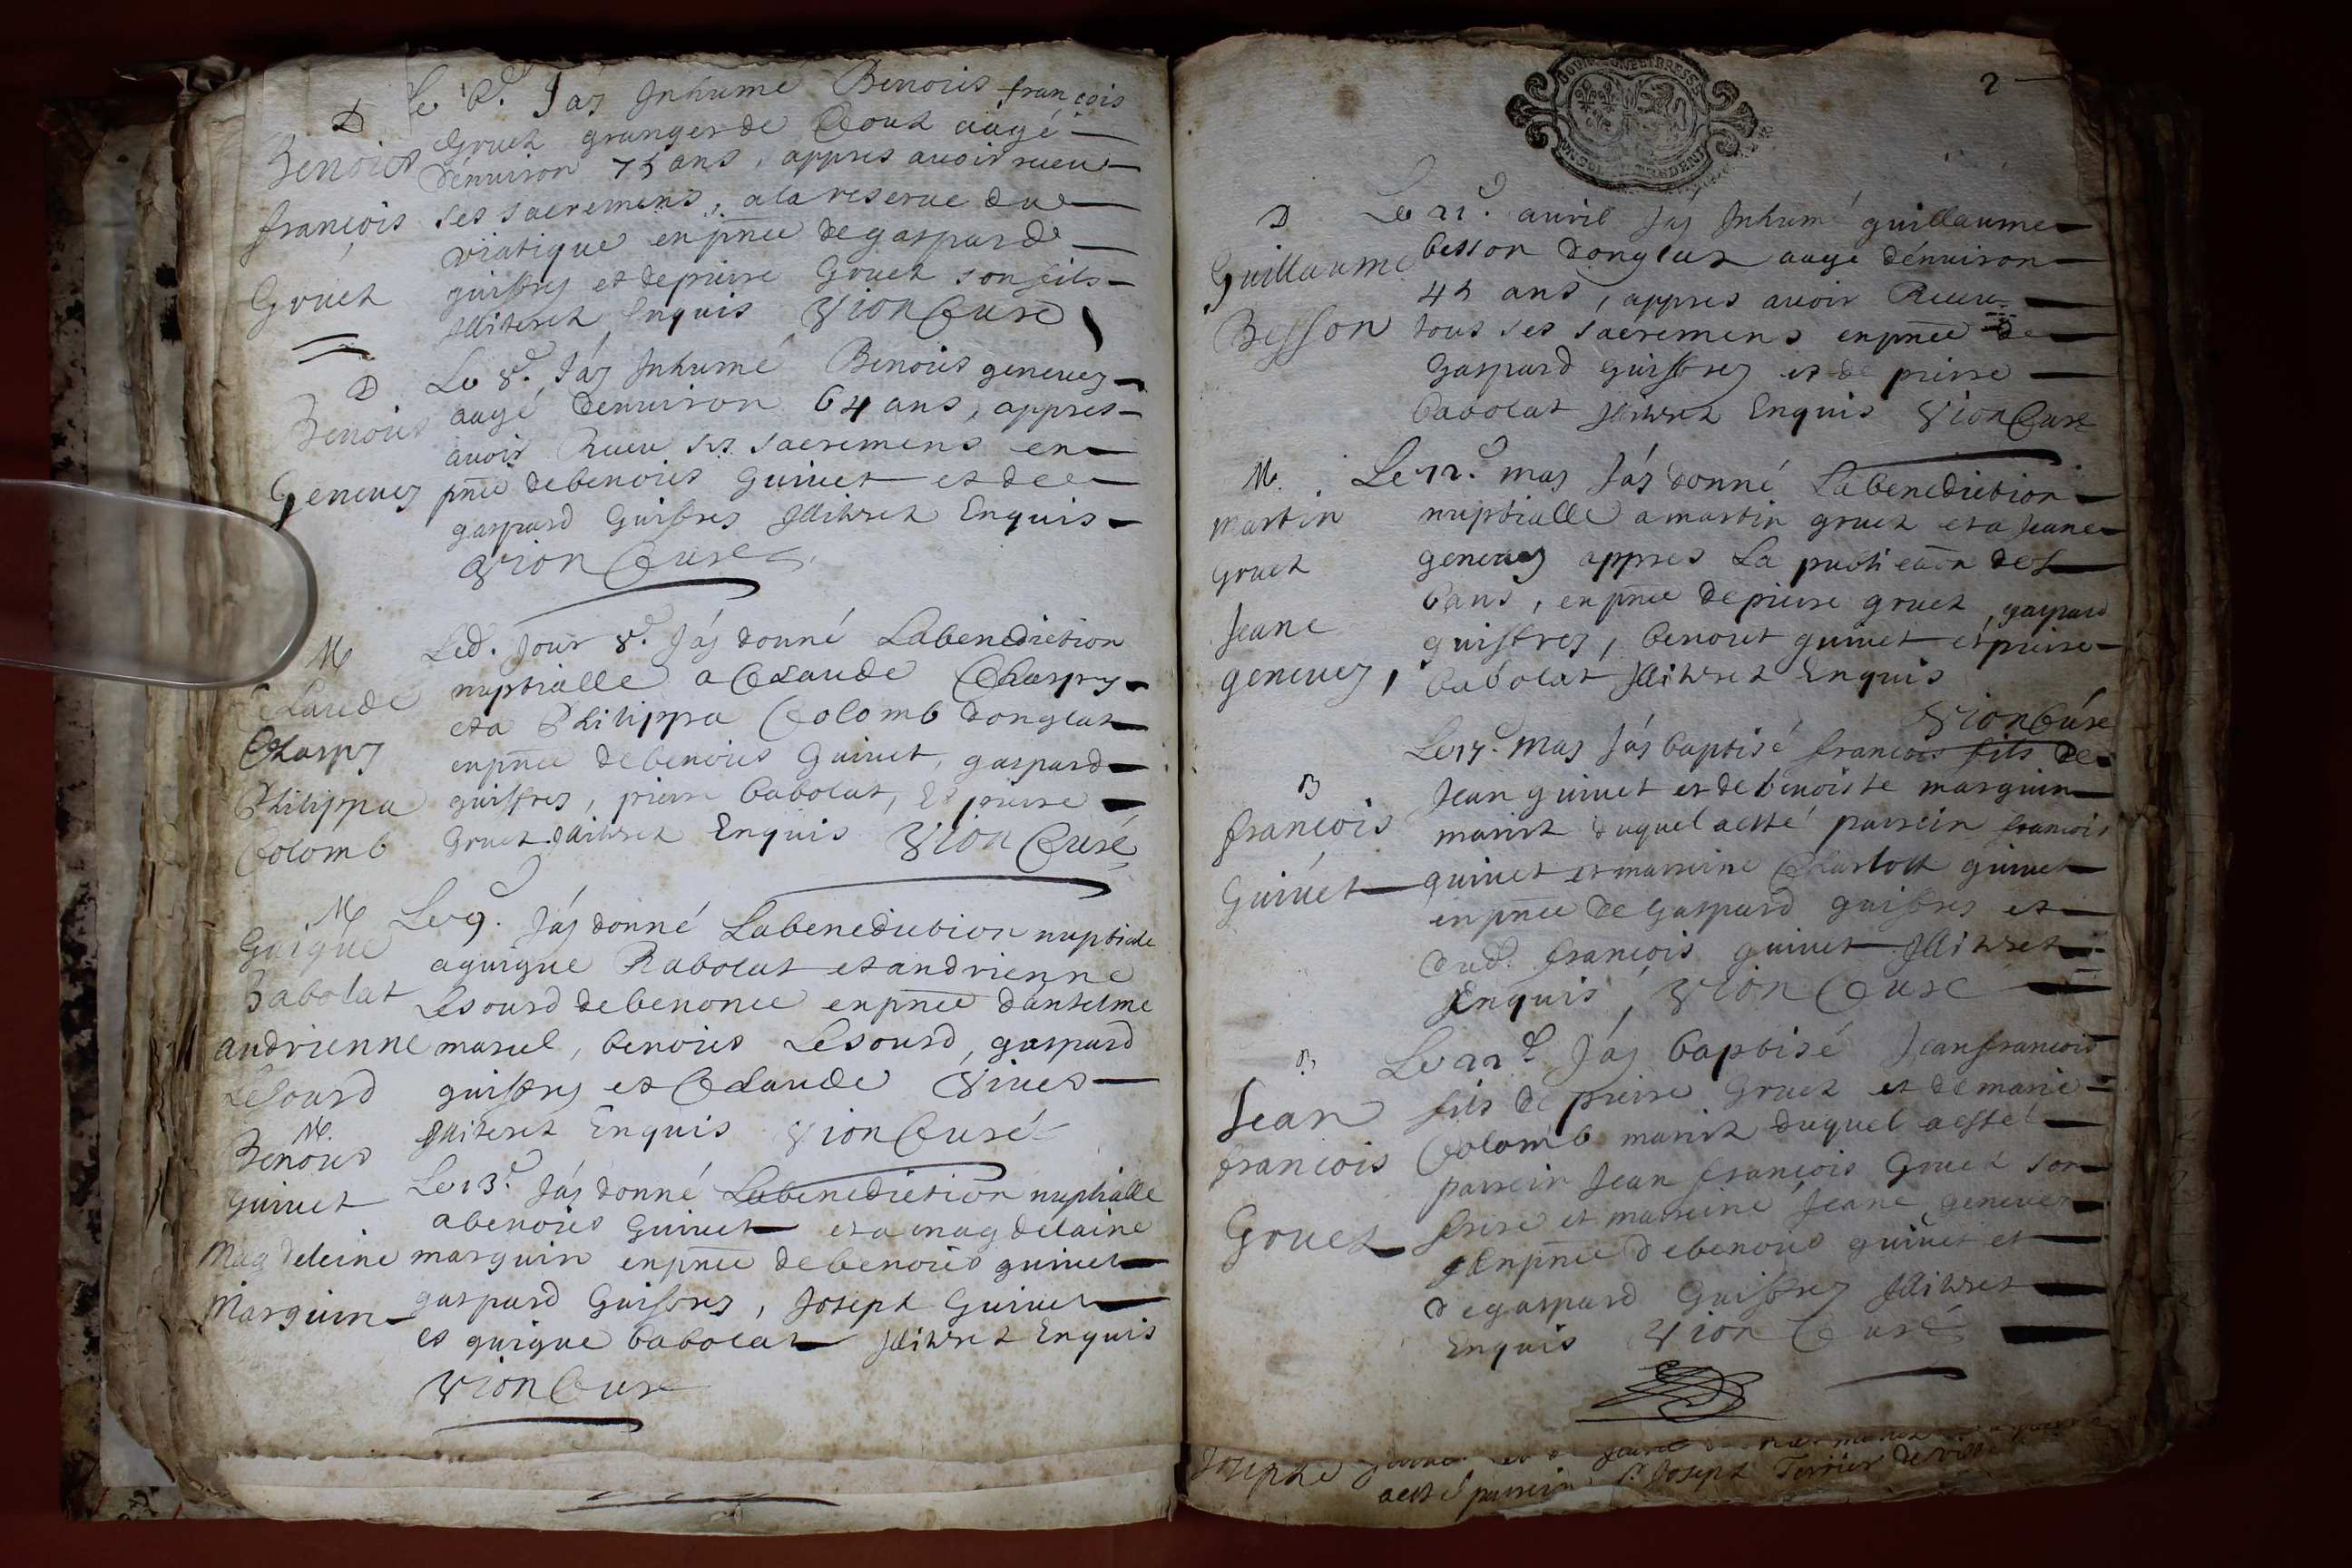 D
Benoict
françois
Gruet
Le 6e. Jay Inhumé Benoict françois
Gruet granger de aagé
denuiron 75 ans, appres auoir receu
ses sacremens, a la reserue due
viatique en pnce de gaspard
guiffrey et de pierre Gruet son fils
Illiteret Enquis Vion Curé
D
Benoict
Geneuey
Le 8e. Jay Inhumé Benoict geneuey
aagé denuiron 64 ans, appres
auoir Receu ses sacremens en
pnce de benoict Guinet et de
gaspard Guiffrey Illiteret Enquis
Vion Curé
M
Claude
Charpy
Philippa
Colomb
Led. Jour 8e. Jay donné La benediction
nuptialle a Claude Charpy
et a Philippa Colomb donglas
en pnce de benoict Guinet, gaspard
guiffrey, pierre babolat, Et pierre
Gruet Illiteret Enquis Vion Curé
M
Guigue
Babolat
andrienne
Lesourd
Le 9e. Jay donné La benediction nuptiale
a guigue Babolat et andrienne
Lesourd de benonce en pnce danselme
marcel, benoict Lesourd, gaspard
guiffrey et Claude Viuet
Illiteret Enquis Vion Curé
M.
Benoict
guinet
Magdeleine
Marguin
Le 13e. Jay donné La benediction nuptialle
a benoict Guinet et a magdelaine
marguin en pnce de benoict guinet
gaspard Guiffrey, Joseph Guinet
et guigue babolat Illiteret Enquis
Vion Curé
2
D
Guillaume
Besson
Le 21e. auril Jay Inhumé guillaume
besson donglas aagé dénuiron
45 ans, appres auoir Receu
tous ses sacremens en pnce de
Gaspard guiffrey et de pierre
babolat Illiteret Enquis Vion Curé
M.
Martin
gruet
Jeane
geneuey,
Le 12e. may Jay donné La benediction
nuptialle a martin gruet et a Jeane
geneuey appres La publicaon des
bans, en pnce de pierre gruet, gaspard
guiffrey, benoict guinet et pierre
babolat Illiteret Enquis
Vion Curé
B
françois
Guinet
Le 17e. May Jay baptisé francois fils de
Jean guinet et de benoiste marguin
mariet duquel a esté parrein francois
guinet et marreine Charlotte guinet
en pnce de Gaspard guiffrey et
dud. françois guinet Illiteret
Enquis, Vion Curé
B
Jean
françois
Gruet
Le 22e. Jay baptisé Jean francois
fils de pierre Gruet et de marie
Colomb mariet duquel a esté
parrein Jean françois Gruet son
frere et marreine Jeane geneuey
En pnce de benoict guinet et
de gaspard Guiffrey Illiteret
Enquis Vion Curé
Josephe
a esté parrein, Sr. Joseph Terrier de